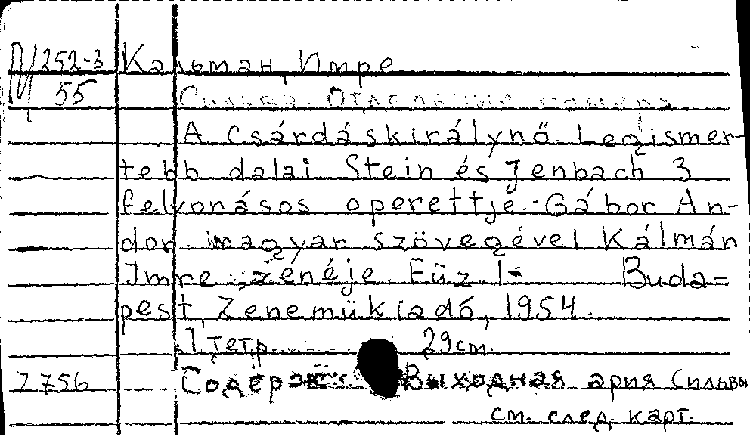 252-3 Кальман, Имре
55
Сильва. Отдельные номера.
A Csárdáskirálynő. Legismer-
tebb dalai Stein és Jenbach 3
felvonásos operettje. Gábor An-
dor magyar szövegével Kálmán
Imre zenéje. Füz. 1- Buda-
pest Zeneműkiadó, 1954.
1 тетр. 29 cm.
7756 Содерж Выходная ария Сильвы
см. след. карт.